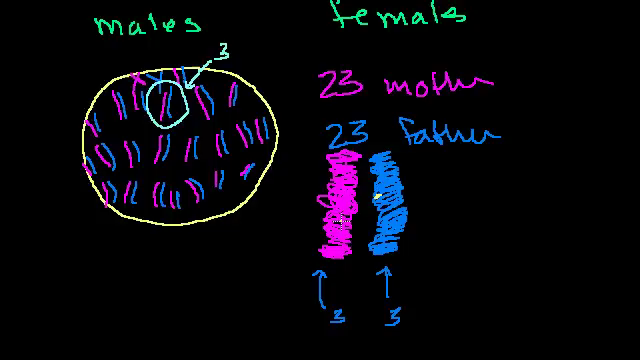 males
females
3
23 mother
23 father
3 3